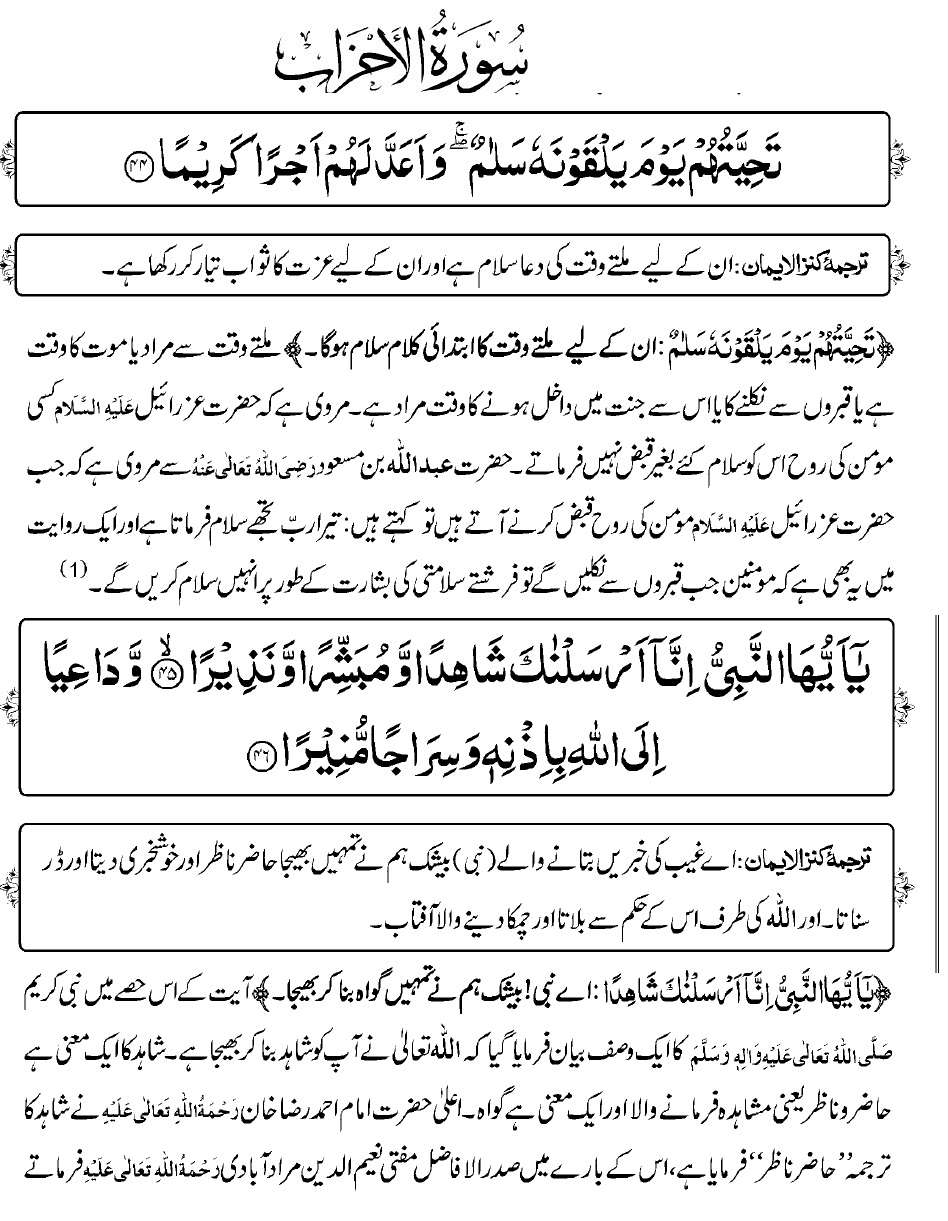 سُوْرَةُ الْاَحْزَاب
تَحِیَّتُهُمْ یَوْمَ یَلْقَوْنَهٗ سَلٰمٌ ۖۚ وَ اَعَدَّ لَهُمْ اَجْرًا كَرِیْمًا ﴿۴۴﴾
ترجمۂ کنز الایمان: ان کے لیے ملتے وقت کی دعا سلام ہے اور ان کے لیے عزت کا ثواب تیار کر رکھا ہے۔
﴿تَحِیَّتُهُمْ یَوْمَ یَلْقَوْنَهٗ سَلٰمٌ: ان کے لیے ملتے وقت کا ابتدائی کلام سلام ہوگا۔﴾ ملتے وقت سے مراد یا موت کا وقت
ہے یا قبروں سے نکلنے کا یا اس سے جنت میں داخل ہونے کا وقت مراد ہے۔ مروی ہے کہ حضرت عزرائیل عَلَیْہِ السَّلَام کسی
مومن کی روح اس کو سلام کئے بغیر قبض نہیں فرماتے۔ حضرت عبد اللہ بن مسعود رَضِیَ اللہُ تَعَالٰی عَنْہُ سے مروی ہے کہ جب
حضرت عزرائیل عَلَیْہِ السَّلَام مومن کی روح قبض کرنے آتے ہیں تو کہتے ہیں: تیرا ربّ تجھے سلام فرماتا ہے اور ایک روایت
میں یہ بھی ہے کہ مومنین جب قبروں سے نکلیں گے تو فرشتے سلامتی کی بشارت کے طور پر انہیں سلام کریں گے۔ (1)
یٰۤاَیُّهَا النَّبِیُّ اِنَّاۤ اَرْسَلْنٰكَ شَاهِدًا وَّ مُبَشِّرًا وَّ نَذِیْرًاۙ ﴿۴۵﴾ وَّ دَاعِیًا
اِلَى اللّٰهِ بِاِذْنِهٖ وَ سِرَاجًا مُّنِیْرًا ﴿۴۶﴾
ترجمۂ کنز الایمان: اے غیب کی خبریں بتانے والے (نبی) بیشک ہم نے تمہیں بھیجا حاضر ناظر اور خوشخبری دیتا اور ڈر
سناتا۔ اور اللہ کی طرف اس کے حکم سے بلاتا اور چمکا دینے والا آفتاب۔
﴿یٰۤاَیُّهَا النَّبِیُّ اِنَّاۤ اَرْسَلْنٰكَ شَاهِدًا: اے نبی! بیشک ہم نے تمہیں گواہ بنا کر بھیجا۔﴾ آیت کے اس حصے میں نبی کریم
صَلَّی اللہُ تَعَالٰی عَلَیْہِ وَاٰلِہٖ وَسَلَّمَ کا ایک وصف بیان فرمایا گیا کہ اللہ تعالیٰ نے آپ کو شاہد بنا کر بھیجا ہے۔ شاہد کا ایک معنی ہے
حاضر و ناظر یعنی مشاہدہ فرمانے والا اور ایک معنی ہے گواہ۔ اعلیٰ حضرت امام احمد رضا خان رَحْمَۃُ اللہِ تَعَالٰی عَلَیْہِ نے شاہد کا
ترجمہ ’’حاضر ناظر‘‘ فرمایا ہے، اس کے بارے میں صدر الافاضل مفتی نعیم الدین مراد آبادی رَحْمَۃُ اللہِ تَعَالٰی عَلَیْہِ فرماتے